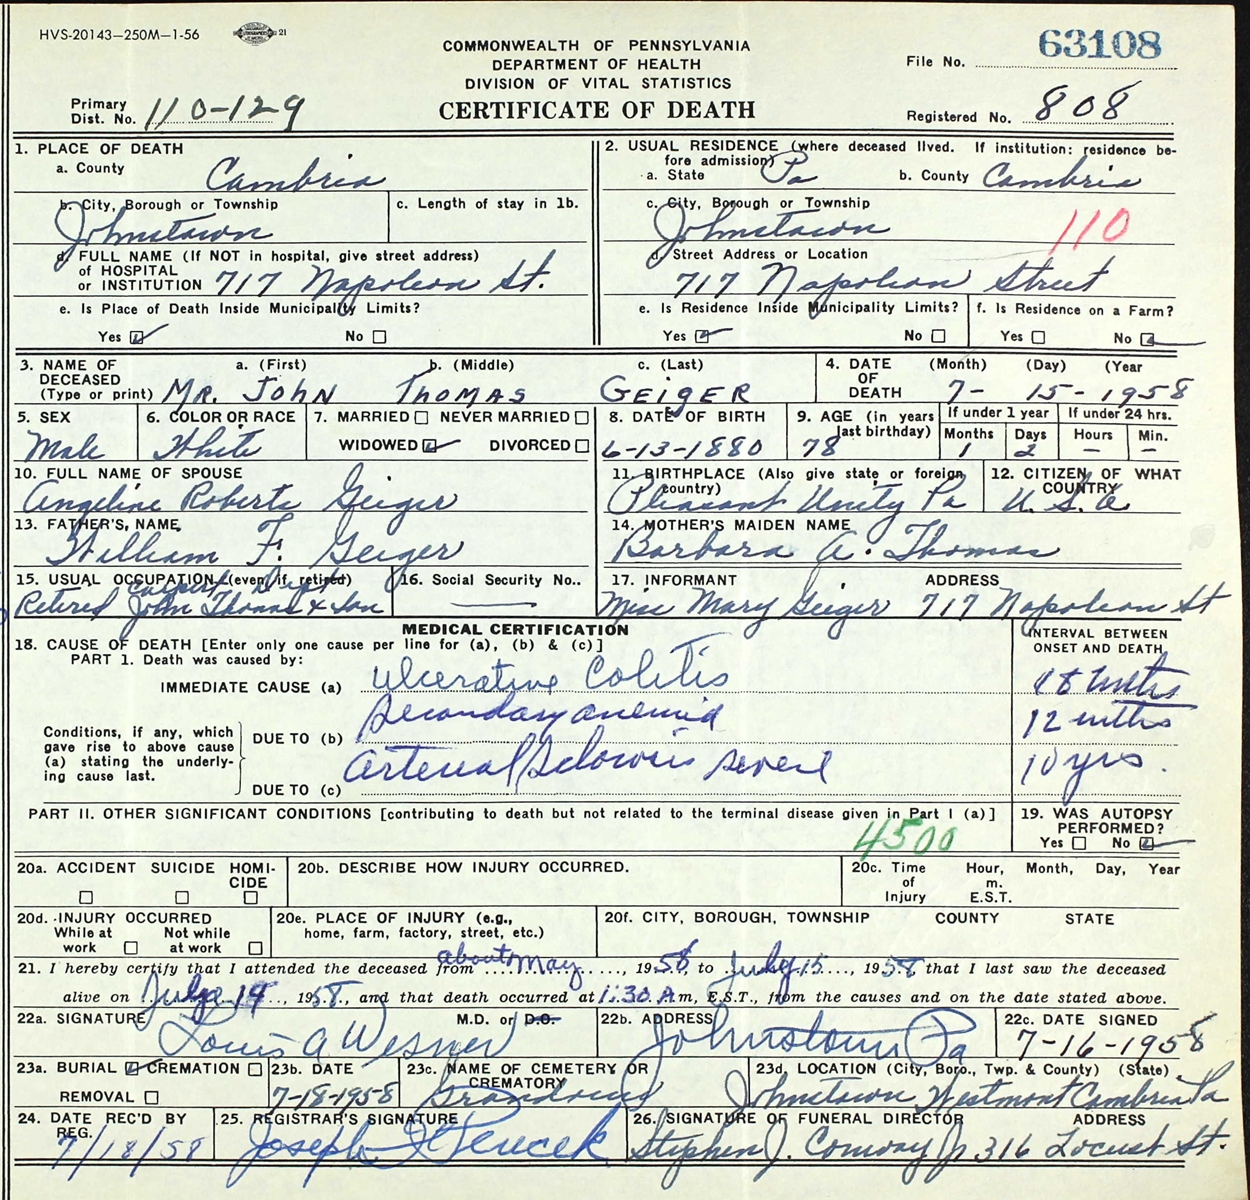 HVS-20143—250M—1-56
21
COMMONWEALTH OF PENNSYLVANIA
DEPARTMENT OF HEALTH
DIVISION OF VITAL STATISTICS
CERTIFICATE OF DEATH
File No. 63108
Primary Dist. No. 110-129
Registered No. 808
1. PLACE OF DEATH
a. County Cambria
b. City, Borough or Township Johnstown
c. Length of stay in 1b.
d. FULL NAME (If NOT in hospital, give street address)
of HOSPITAL
or INSTITUTION 717 Napoleon St.
e. Is Place of Death Inside Municipality Limits?
Yes ☑ No ☐
2. USUAL RESIDENCE (where deceased lived. If institution: residence be-
fore admission)
a. State Pa b. County Cambria
c. City, Borough or Township Johnstown
110
d. Street Address or Location
717 Napoleon Street
e. Is Residence Inside Municipality Limits? f. Is Residence on a Farm?
Yes ☑ No ☐ Yes ☐ No ☑
3. NAME OF DECEASED (Type or print) a. (First) b. (Middle) c. (Last)
MR. JOHN THOMAS GEIGER
4. DATE OF DEATH (Month) (Day) (Year
7- 15- 1958
5. SEX Male
6. COLOR OR RACE White
7. MARRIED ☐ NEVER MARRIED ☐
WIDOWED ☑ DIVORCED ☐
8. DATE OF BIRTH 6-13-1880
9. AGE (in years last birthday) 78
If under 1 year If under 24 hrs.
Months Days Hours Min.
1 2 — —
10. FULL NAME OF SPOUSE
Angeline Roberts Geiger
11. BIRTHPLACE (Also give state or foreign country)
Pleasant Unity Pa
12. CITIZEN OF WHAT COUNTRY
U.S.A
13. FATHER'S NAME
William F. Geiger
14. MOTHER'S MAIDEN NAME
Barbara A. Thomas
15. USUAL OCCUPATION (even if retired)
Carpet Dept
Retired John Thomas & Son
16. Social Security No.. —
17. INFORMANT ADDRESS
Miss Mary Geiger 717 Napoleon St
MEDICAL CERTIFICATION
18. CAUSE OF DEATH [Enter only one cause per line for (a), (b) & (c)]
PART 1. Death was caused by:
INTERVAL BETWEEN
ONSET AND DEATH
IMMEDIATE CAUSE (a) Ulcerative Colitis 18 mths
Conditions, if any, which gave rise to above cause (a) stating the underly- ing cause last.
DUE TO (b) Secondary anemia 12 mths
DUE TO (c) Arterial Sclerosis severe 10 yrs.
PART II. OTHER SIGNIFICANT CONDITIONS [contributing to death but not related to the terminal disease given in Part I (a)]
4500
19. WAS AUTOPSY PERFORMED?
Yes ☐ No ☑
20a. ACCIDENT SUICIDE HOMI-
CIDE
☐ ☐ ☐
20b. DESCRIBE HOW INJURY OCCURRED.
20c. Time of Injury Hour, m. E.S.T. Month, Day, Year
20d. INJURY OCCURRED
While at work ☐ Not while at work ☐
20e. PLACE OF INJURY (e.g., home, farm, factory, street, etc.)
20f. CITY, BOROUGH, TOWNSHIP COUNTY STATE
21. I hereby certify that I attended the deceased from about May, 1958 to July 15, 1958 that I last saw the deceased
alive on July 14, 1958, and that death occurred at 1:30 A.m, E.S.T., from the causes and on the date stated above.
22a. SIGNATURE M.D. or D.O.
Louis A Wesner
22b. ADDRESS
Johnstown Pa
22c. DATE SIGNED
7-16-1958
23a. BURIAL ☑ CREMATION ☐
REMOVAL ☐
23b. DATE
7-18-1958
23c. NAME OF CEMETERY OR CREMATORY
Grandview
23d. LOCATION (City, Boro., Twp. & County) (State)
Johnstown Westmont Cambria Pa
24. DATE REC'D BY REG.
7/18/58
25. REGISTRAR'S SIGNATURE
Joseph
26. SIGNATURE OF FUNERAL DIRECTOR ADDRESS
Stephen J. Conway Jr 316 Locust St.